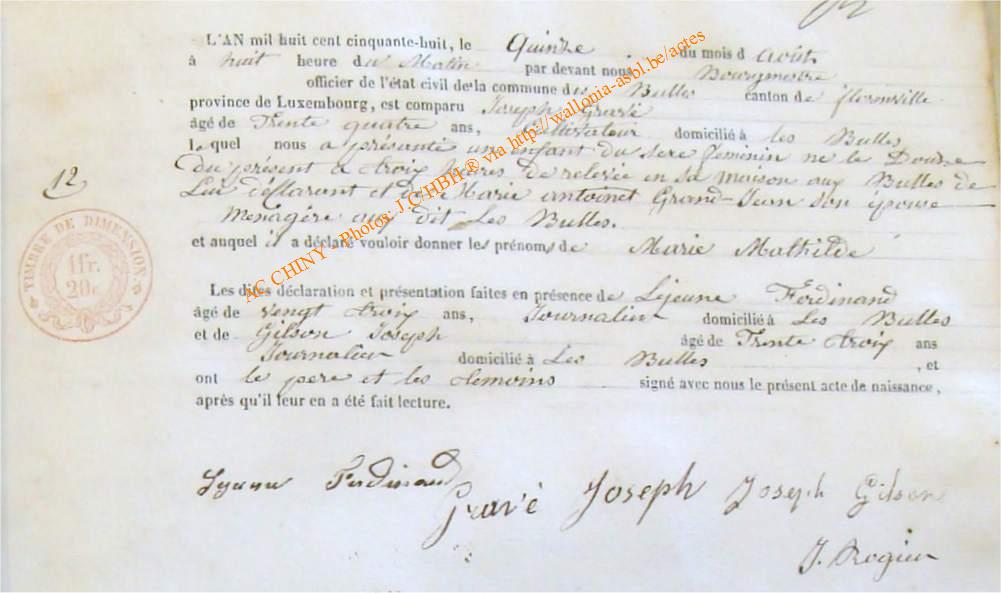 L'AN mil huit cent cinquante-huit, le Quinze du mois d'Août
à huit heure du Matin par devant nous Bourgmestre
officier de l'état civil de la commune des Bulles canton de florenville
province de Luxembourg, est comparu Joseph Gravé
âgé de Trente quatre ans, Cultivateur domicilié à les Bulles
lequel nous a présenté un enfant du sexe feminin né le Douze
Du présent a troix heures de relevée en sa maison aux Bulles de
Lui déllarant et de Marie antoinet Grand-Jean son épouse
Menagère aux dit Les Bulles.
et auquel il a déclaré vouloir donner les prénoms de Marie Mathilde
12
TIMBRE DE DIMENSION
1fr.
20c.
Les dites déclaration et présentation faites en présence de Lejeune Ferdinand
âgé de vengt troix ans, Journalier domicilié à Les Bulles
et de Gilson Joseph âgé de Trente troix ans
Journalier domicilié à Les Bulles, et
ont le pere et les temoins signé avec nous le présent acte de naissance,
après qu'il leur en a été fait lecture.
Lejeune Ferdinand
Gravé Joseph Joseph Gilson
J. Rogier
AC CHINY - Photos: J.C HBH ® via http://wallonia-asbl.be/actes